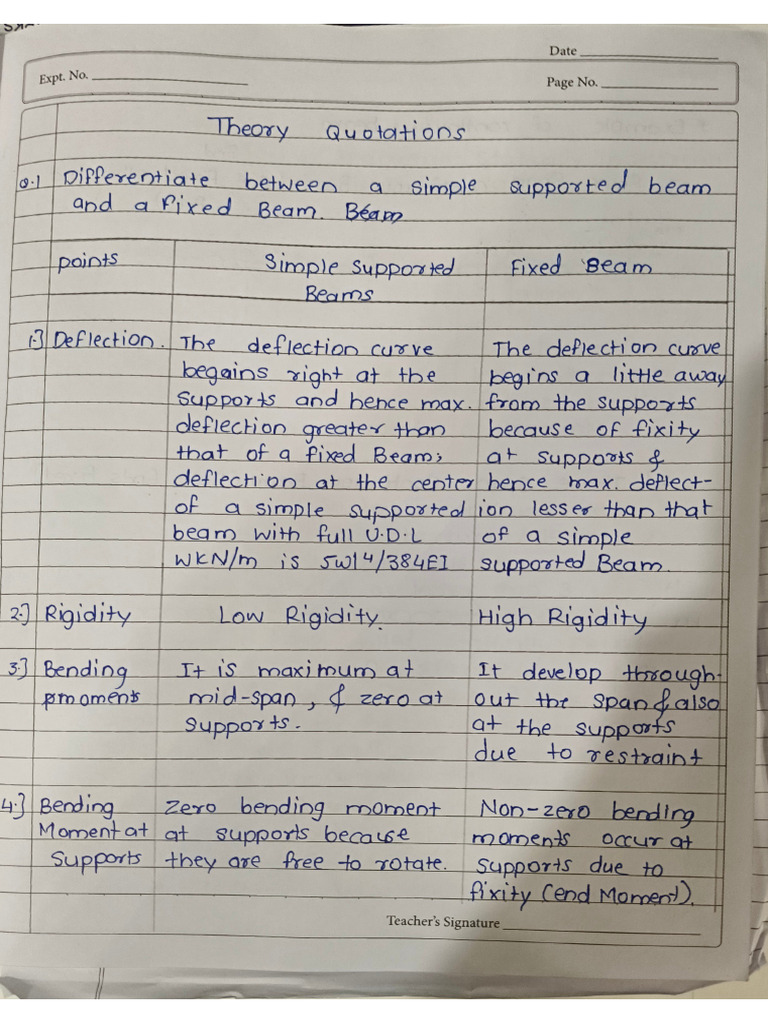 Date
Expt. No.
Page No.
Theory Quotations
Q.1 Differentiate between a simple supported beam
and a fixed Beam. Beam
points
Simple Supported
Beams
Fixed Beam
1.] Deflection.
The deflection curve
begains right at the
supports and hence max.
deflection greater than
that of a fixed Beam;
deflection at the center
of a simple supported
beam with full U.D.L
WKN/m is 5wl4/384EI
The deflection curve
begins a little away
from the supports
because of fixity
at supports &
hence max. deflect-
ion lesser than that
of a simple
supported Beam.
2.] Rigidity
Low Rigidity.
High Rigidity
3.] Bending
moments
It is maximum at
mid-span, & zero at
supports.
It develop through-
out the span & also
at the supports
due to restraint
4.] Bending
Moment at
Supports
Zero bending moment
at supports because
they are free to rotate.
Non-zero bending
moments occur at
supports due to
fixity (end Moment).
Teacher's Signature